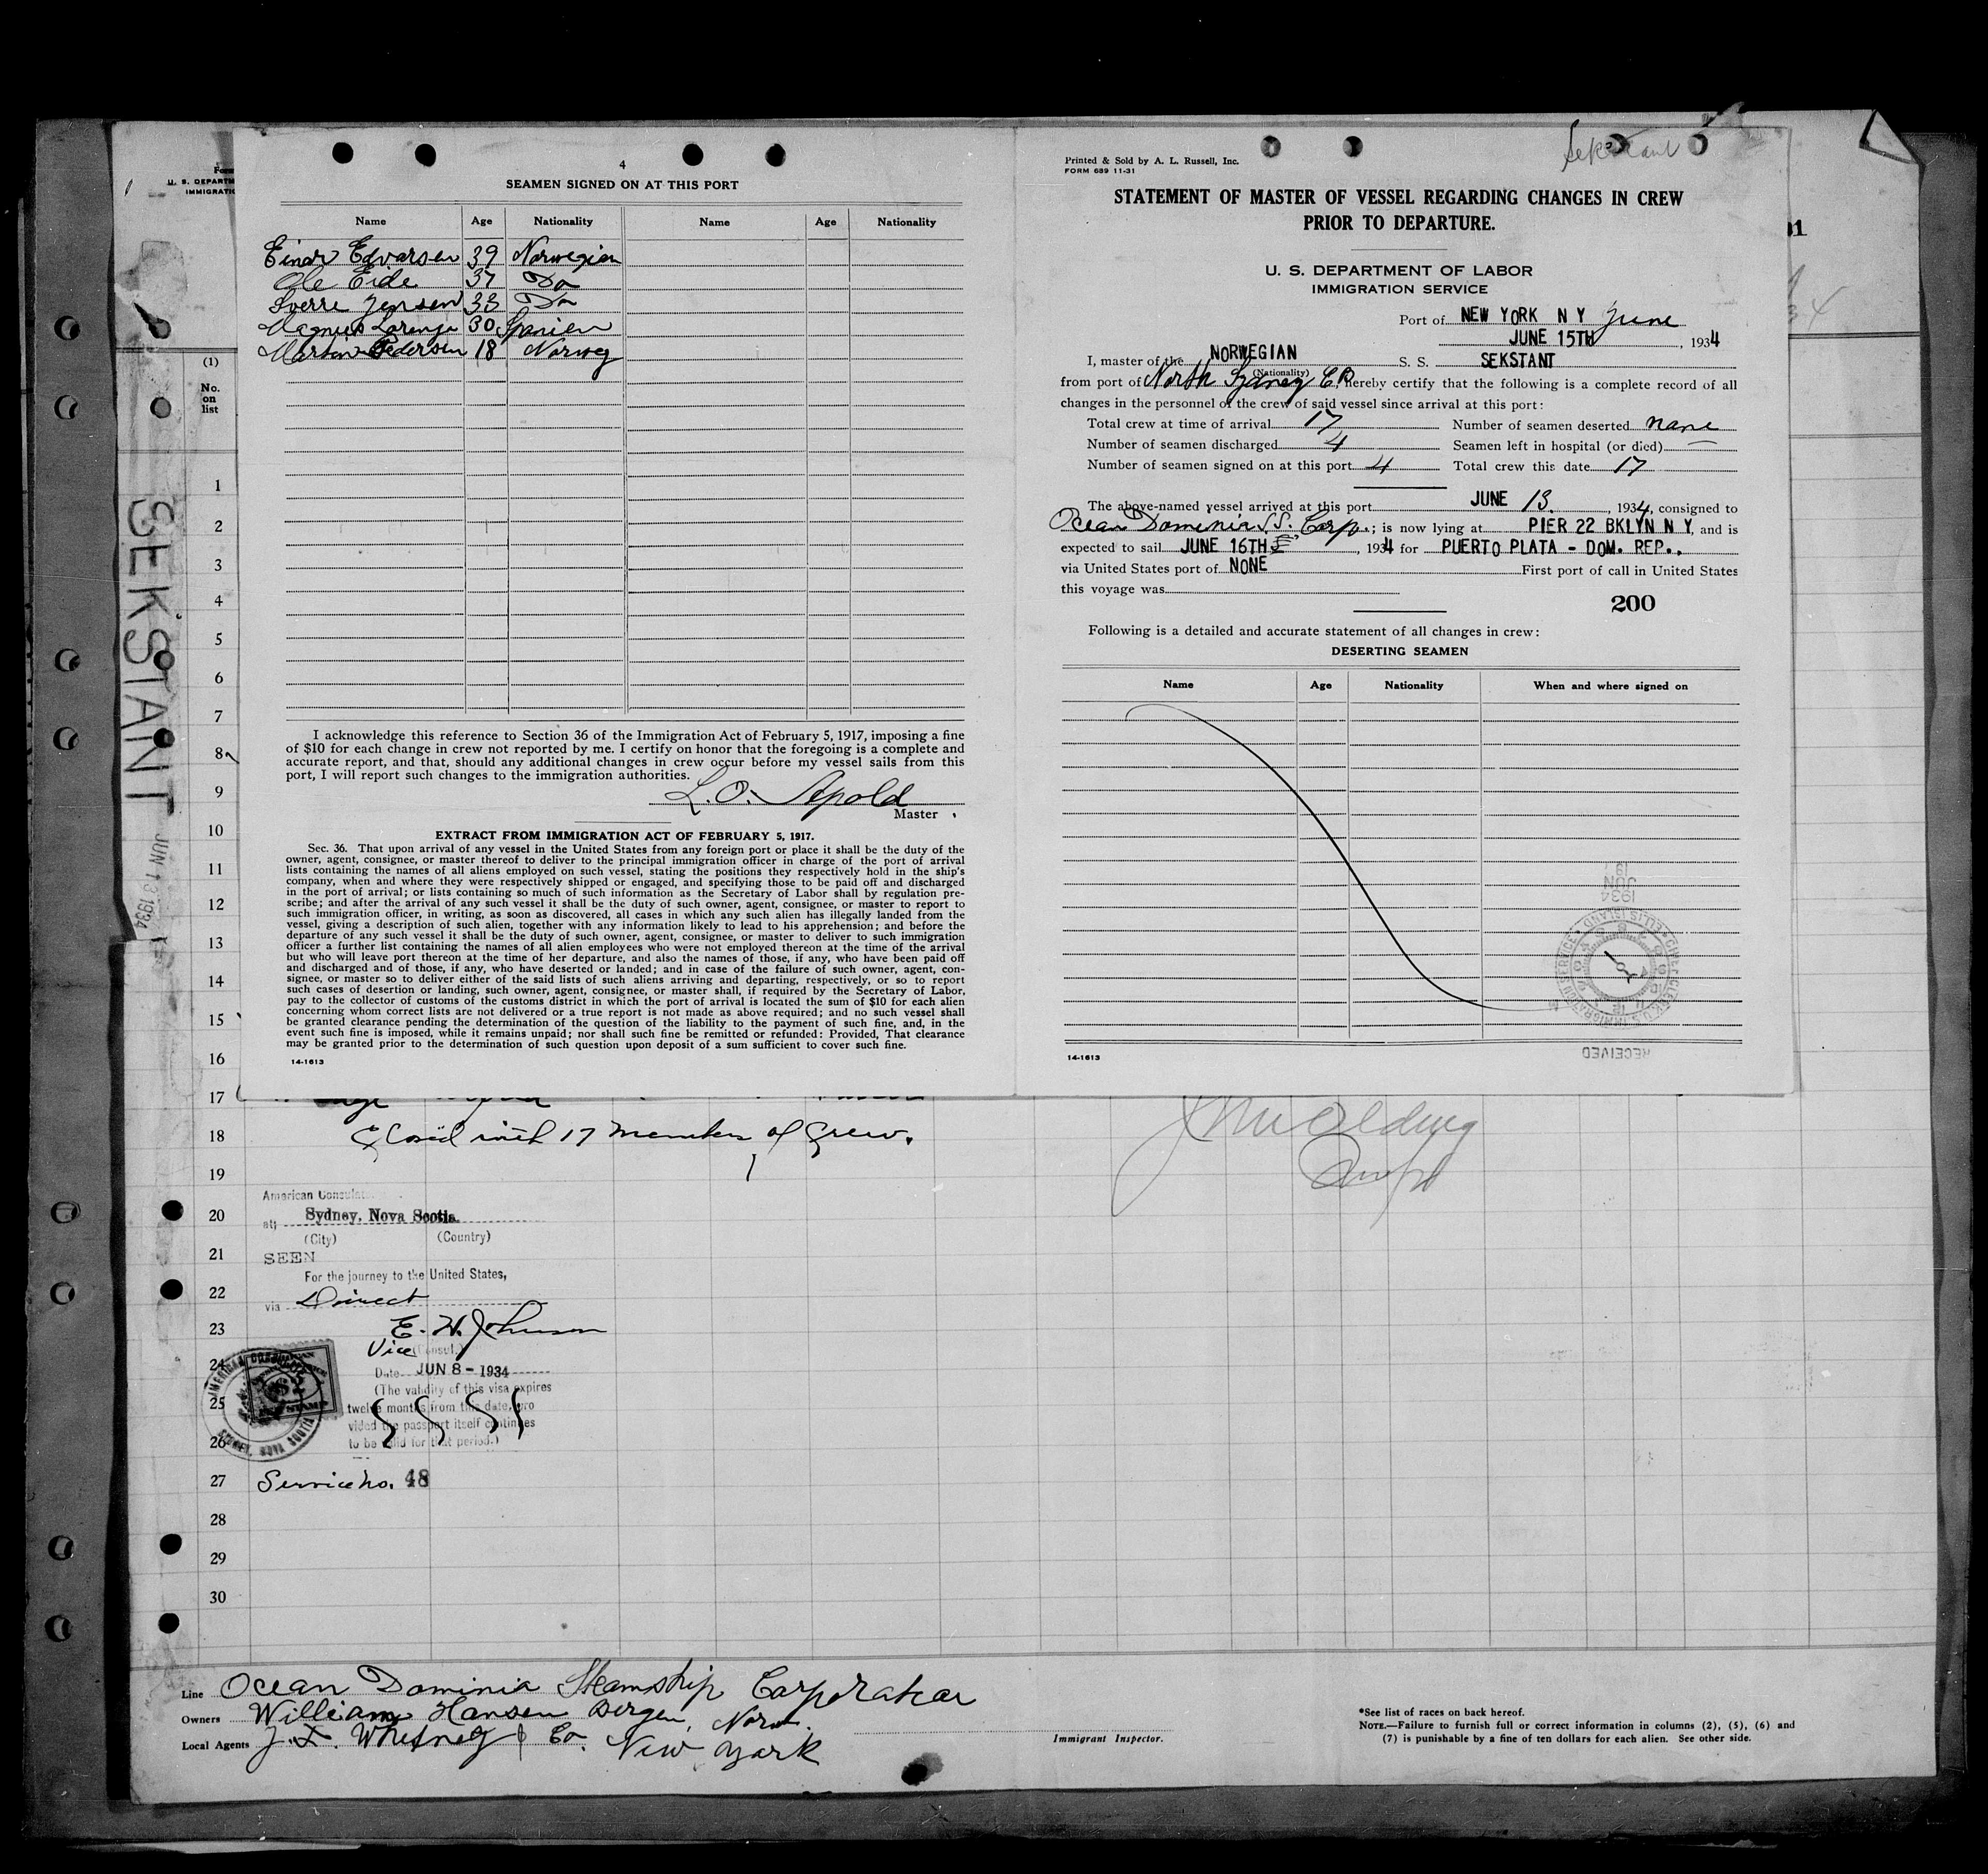 4
SEAMEN SIGNED ON AT THIS PORT
Name Age Nationality Name Age Nationality
Einar Edvarsen 39 Norwegian
Ole Eide 37 Do
Sverre Jensen 33 Do
Magnus Lorenzo 30 Spanien
Martin Pedersen 18 Norweg
I acknowledge this reference to Section 36 of the Immigration Act of February 5, 1917, imposing a fine
of $10 for each change in crew not reported by me. I certify on honor that the foregoing is a complete and
accurate report, and that, should any additional changes in crew occur before my vessel sails from this
port, I will report such changes to the immigration authorities.
L. O. Apold
Master
EXTRACT FROM IMMIGRATION ACT OF FEBRUARY 5, 1917.
Sec. 36. That upon arrival of any vessel in the United States from any foreign port or place it shall be the duty of the
owner, agent, consignee, or master thereof to deliver to the principal immigration officer in charge of the port of arrival
lists containing the names of all aliens employed on such vessel, stating the positions they respectively hold in the ship's
company, when and where they were respectively shipped or engaged, and specifying those to be paid off and discharged
in the port of arrival; or lists containing so much of such information as the Secretary of Labor shall by regulation pre-
scribe; and after the arrival of any such vessel it shall be the duty of such owner, agent, consignee, or master to report to
such immigration officer, in writing, as soon as discovered, all cases in which any such alien has illegally landed from the
vessel, giving a description of such alien, together with any information likely to lead to his apprehension; and before the
departure of any such vessel it shall be the duty of such owner, agent, consignee, or master to deliver to such immigration
officer a further list containing the names of all alien employees who were not employed thereon at the time of the arrival
but who will leave port thereon at the time of her departure, and also the names of those, if any, who have been paid off
and discharged and of those, if any, who have deserted or landed; and in case of the failure of such owner, agent, con-
signee, or master so to deliver either of the said lists of such aliens arriving and departing, respectively, or so to report
such cases of desertion or landing, such owner, agent, consignee, or master shall, if required by the Secretary of Labor,
pay to the collector of customs of the customs district in which the port of arrival is located the sum of $10 for each alien
concerning whom correct lists are not delivered or a true report is not made as above required; and no such vessel shall
be granted clearance pending the determination of the question of the liability to the payment of such fine, and, in the
event such fine is imposed, while it remains unpaid; nor shall such fine be remitted or refunded: Provided, That clearance
may be granted prior to the determination of such question upon deposit of a sum sufficient to cover such fine.
14-1613
Sekstant
Printed & Sold by A. L. Russell, Inc.
FORM 689 11-31
STATEMENT OF MASTER OF VESSEL REGARDING CHANGES IN CREW
PRIOR TO DEPARTURE.
U. S. DEPARTMENT OF LABOR
IMMIGRATION SERVICE
Port of NEW YORK N Y June
JUNE 15TH, 1934
I, master of the NORWEGIAN S. S. SEKSTANT
(Nationality)
from port of North Sydney CB hereby certify that the following is a complete record of all
changes in the personnel of the crew of said vessel since arrival at this port:
Total crew at time of arrival 17 Number of seamen deserted none
Number of seamen discharged 4 Seamen left in hospital (or died) —
Number of seamen signed on at this port 4 Total crew this date 17
The above-named vessel arrived at this port JUNE 13, 1934, consigned to
Ocean Dominia S.S. Corp.; is now lying at PIER 22 BKLYN N Y, and is
expected to sail JUNE 16TH, 1934 for PUERTO PLATA - DOM. REP..
via United States port of NONE First port of call in United States
this voyage was
200
Following is a detailed and accurate statement of all changes in crew:
DESERTING SEAMEN
Name Age Nationality When and where signed on
19
JUN
1934
CHIEF CLERK U.S. IMMIGRATION SERVICE ELLIS ISLAND
RECEIVED
14-1613
Form
U. S. DEPARTM
IMMIGRATIO
(1)
No.
on
list
SEKSTANT
JUN 13 1934
1
2
3
4
5
6
7
8
9
10
11
12
13
14
15
16
17
18 Closed with 17 members of Crew.
19
20
21
22
23
24
25
26
27
28
29
30
American Consulate
at Sydney, Nova Scotia.
(City) (Country)
SEEN
For the journey to the United States,
via Direct
E. H. Johnson
Vice Consul.
Date JUN 8 - 1934
(The validity of this visa expires
twelve months from this date, pro
vided the passport itself continues
to be valid for that period.)
AMERICAN CONSULATE SYDNEY, NOVA SCOTIA
Service no. 48
Line Ocean Dominia Steamship Corporation
Owners William Hansen Bergen, Norw.
Local Agents Whitney & Co. New York
Immigrant Inspector.
*See list of races on back hereof.
NOTE.—Failure to furnish full or correct information in columns (2), (5), (6) and
(7) is punishable by a fine of ten dollars for each alien. See other side.